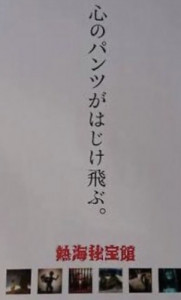 心のパンツがはじけ飛ぶ。
熱海秘宝館